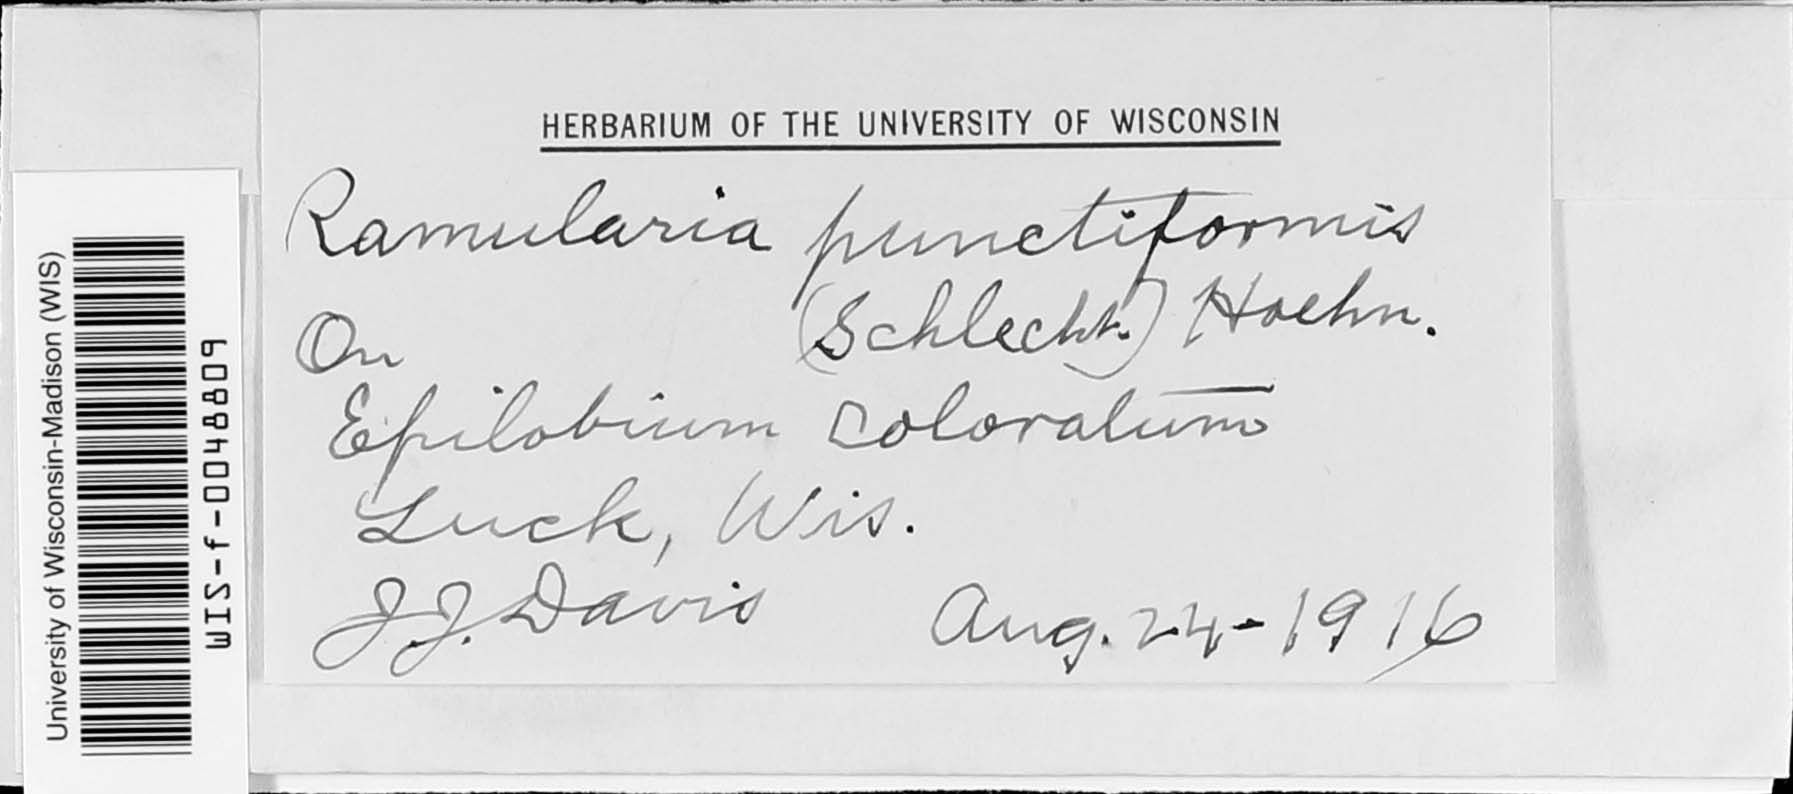 HERBARIUM OF THE UNIVERSITY OF WISCONSIN
Ramularia punctiformis
(Schlecht.) Hoehn.
On
Epilobium coloratum
Luck, Wis.
J.J. Davis Aug. 24-1916
University of Wisconsin-Madison (WIS)
WIS-f-0048809